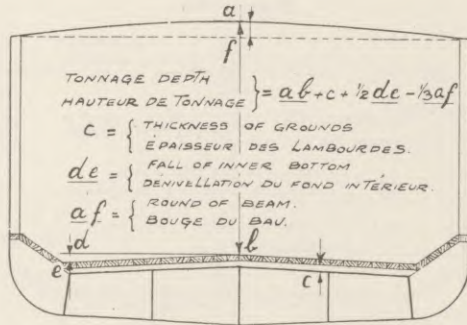 a
f
TONNAGE DEPTH
HAUTEUR DE TONNAGE } = ab + c + 1/2 de - 1/3 af
c = { THICKNESS OF GROUNDS
ÉPAISSEUR DES LAMBOURDES.
de = { FALL OF INNER BOTTOM
DÉNIVELLATION DU FOND INTÉRIEUR.
af = { ROUND OF BEAM.
BOUGE DU BAU.
d
b
e
c